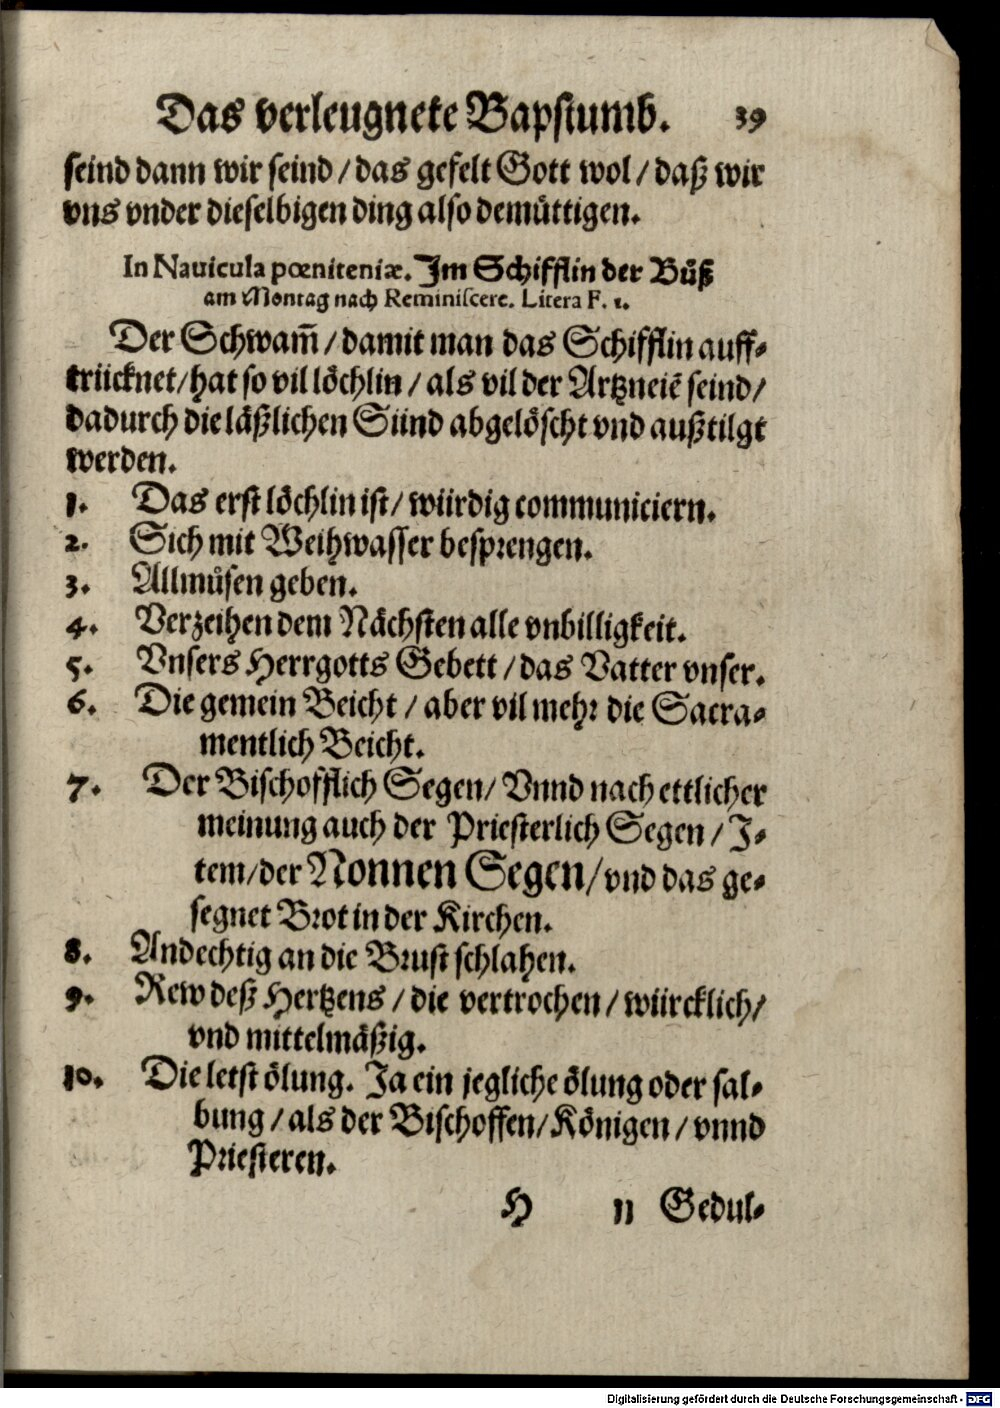 Das verleugnete Bapstumb. 39
seind dann wir seind / das gefelt Gott wol / daß wir
vns vnder dieselbigen ding also demüttigen.
In Nauicula pœnitentiæ. Im Schifflin der Bůß
am Montag nach Reminiscere. Litera F. 1.
Der Schwam̃ / damit man das Schifflin auff-
trücknet / hat so vil löchlin / als vil der Artzneiẽ seind /
dadurch die läßlichen Sünd abgelöscht vnd außtilgt
werden.
1. Das erst löchlin ist / würdig communiciern.
2. Sich mit Weihwasser besprengen.
3. Allmůsen geben.
4. Verzeihen dem Nächsten alle vnbilligkeit.
5. Vnsers Herrgotts Gebett / das Vatter vnser.
6. Die gemein Beicht / aber vil mehr die Sacra-
mentlich Beicht.
7. Der Bischofflich Segen / Vnnd nach ettlicher
meinung auch der Priesterlich Segen / J-
tem / der Nonnen Segen / vnd das ge-
segnet Brot in der Kirchen.
8. Andechtig an die Brust schlahen.
9. Rew deß Hertzens / die vertrochen / würcklich /
vnd mittelmäßig.
10. Die letst ölung. Ja ein jegliche ölung oder sal-
bung / als der Bischoffen / Königen / vnnd
Priesteren.
H ij Gedul-
Digitalisierung gefördert durch die Deutsche Forschungsgemeinschaft - DFG